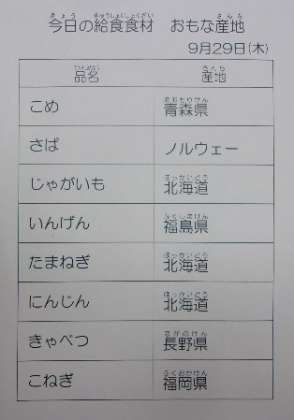 今日の給食食材　おもな産地
9月29日(木)
品名　産地
こめ　青森県
さば　ノルウェー
じゃがいも　北海道
いんげん　福島県
たまねぎ　北海道
にんじん　北海道
きゃべつ　長野県
こねぎ　福岡県